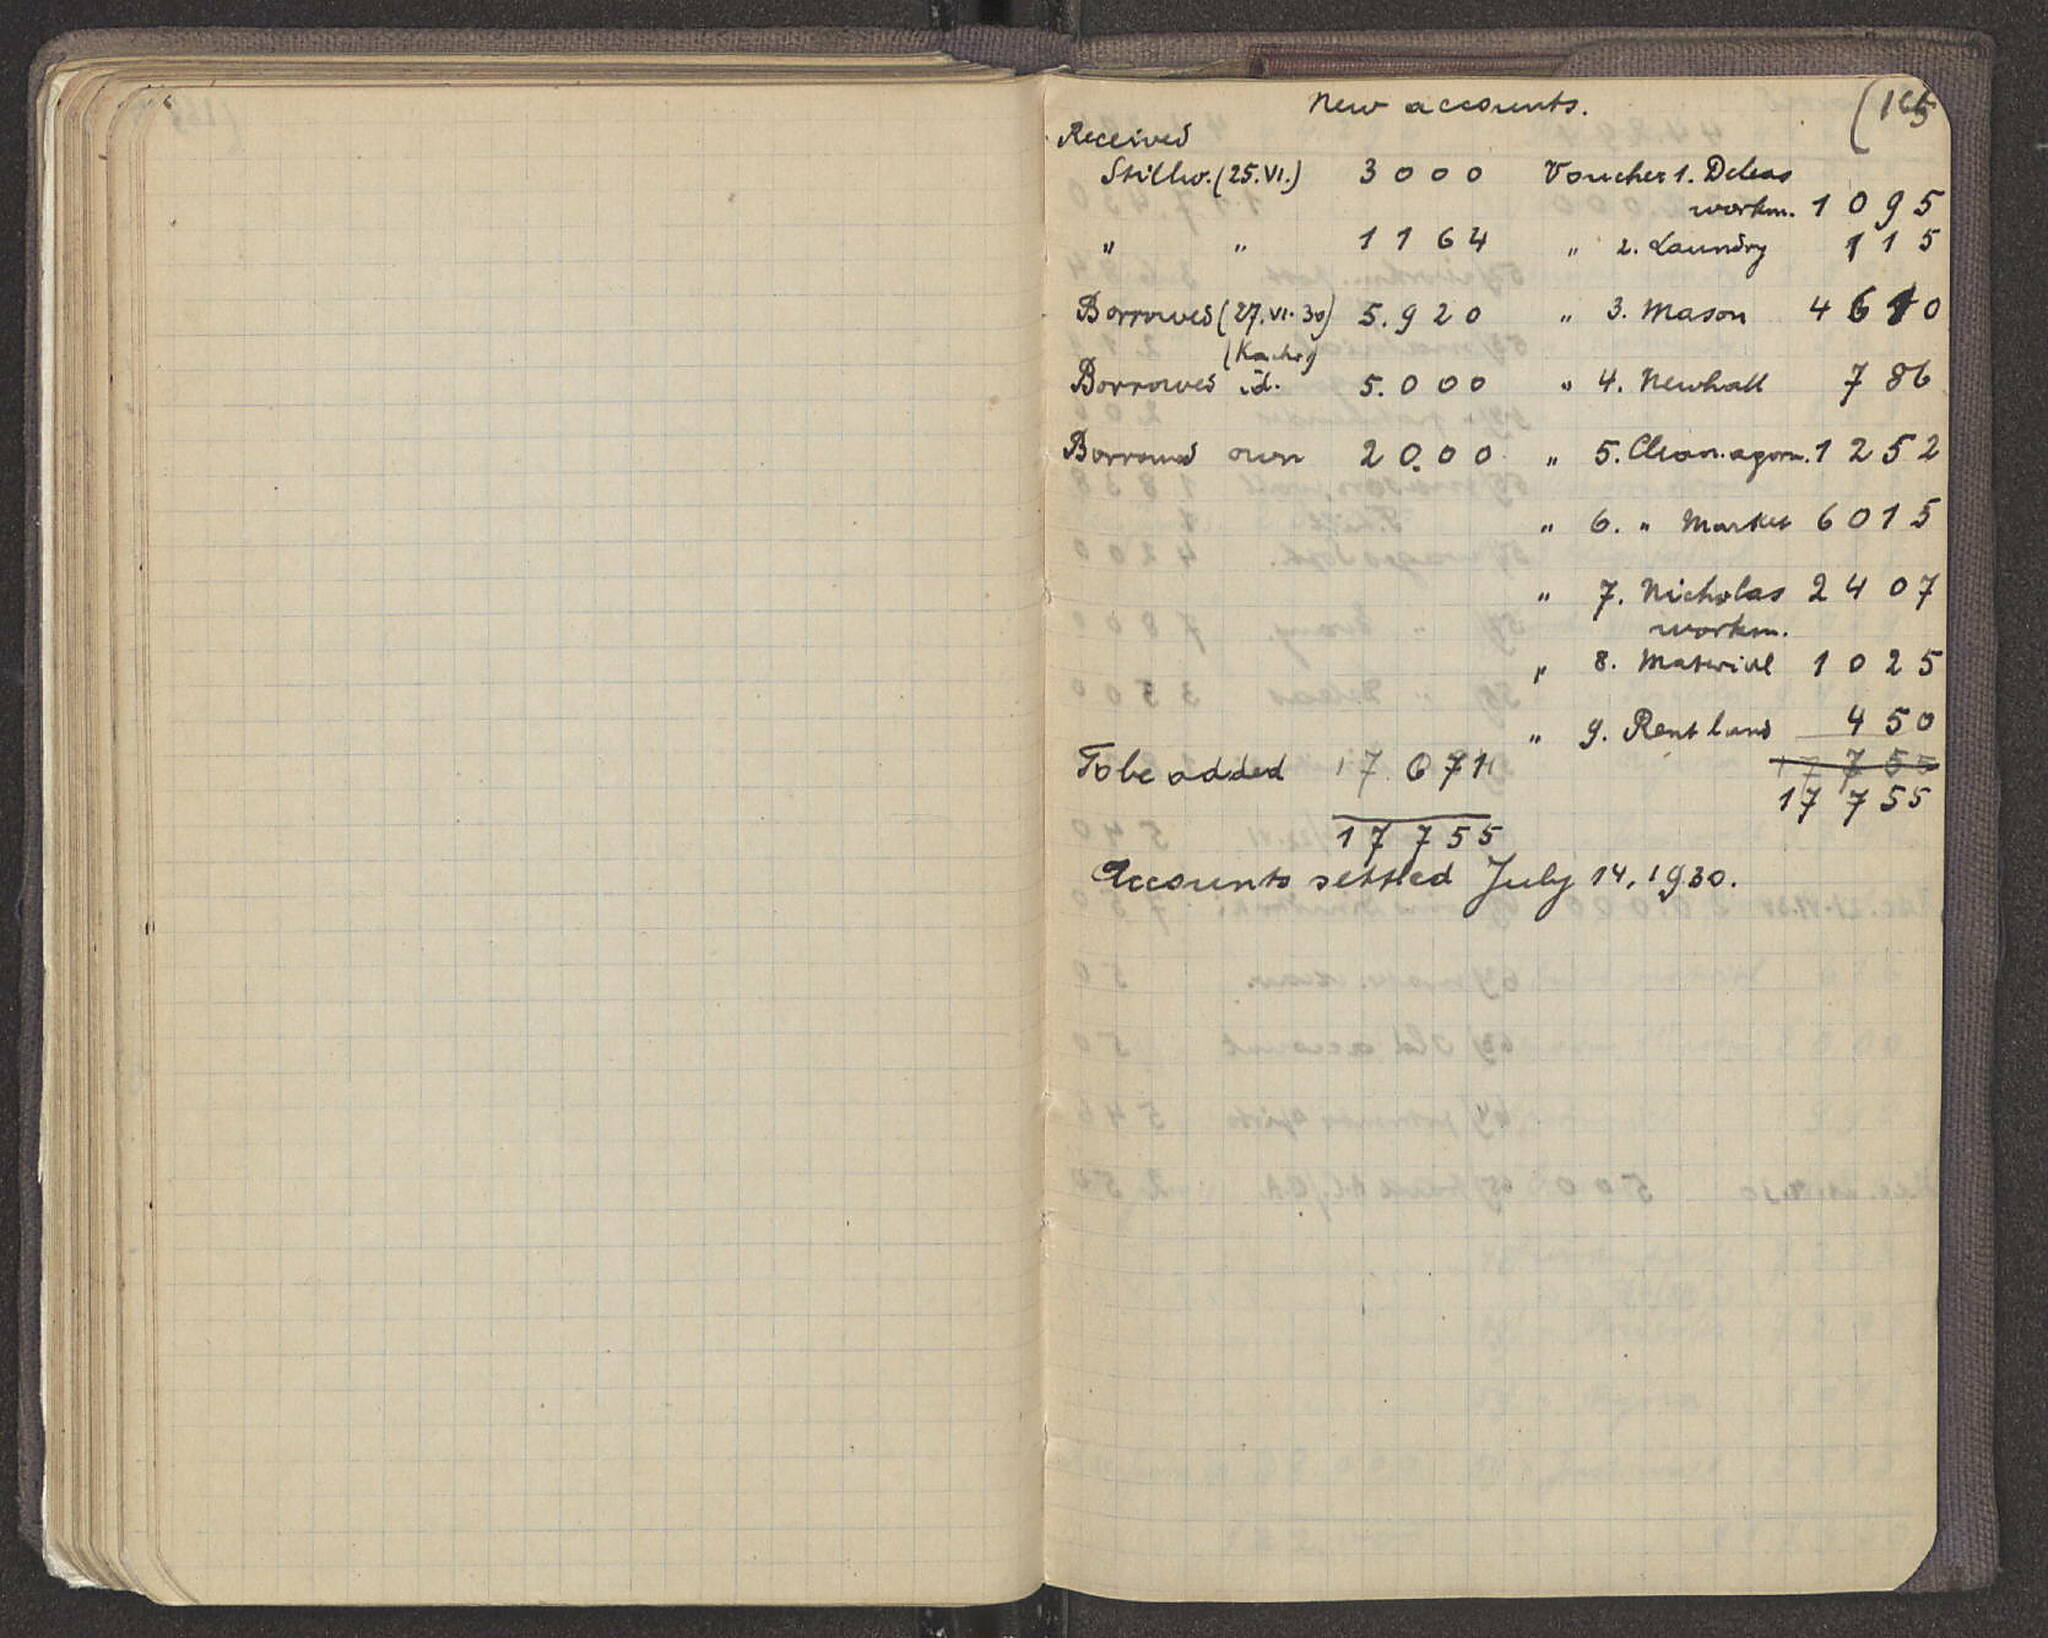 New accounts.
(165
Received
Stillw. (25.VI.) 3000 Voucher 1. Deleas
workm. 1095
" " 1164 " 2. Laundry 115
Borrowed (27.VI.30) 5.920 " 3. Mason 4610
Borrowed id. 5.000 " 4. Newhall 786
Borrowed own 20.00 " 5. Clean. agora. 1252
" 6. " Market 6015
" 7. Nicholas 2407
workm.
" 8. Material 1025
" 9. Rent land 450
To be added 17 671 17 755
17 755
17 755
Accounts settled July 14, 1930.